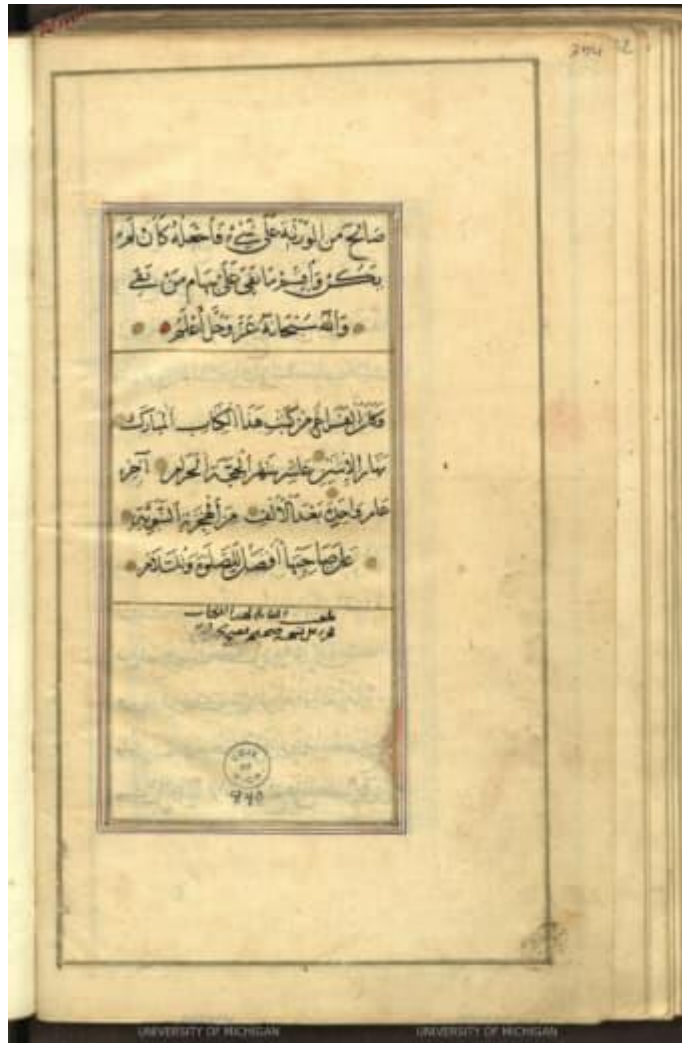 صالح من الورثة على شيء فاجعله كأن لم
يكن واقسم ما بقي على سهام من بقي
والله سبحانه عز وجل أعلم
وكان الفراغ من كتب هذا الكتاب المبارك
نهار الاثنين عشر شهر الحجة الحرام آخر
عام واحد بعد الألف من الهجرة النبوية
على صاحبها أفضل الصلوة والسلام
بلغت
لهذا الكتاب
على نسخة صحيحة
840
UNIVERSITY OF MICHIGAN
UNIVERSITY OF MICHIGAN